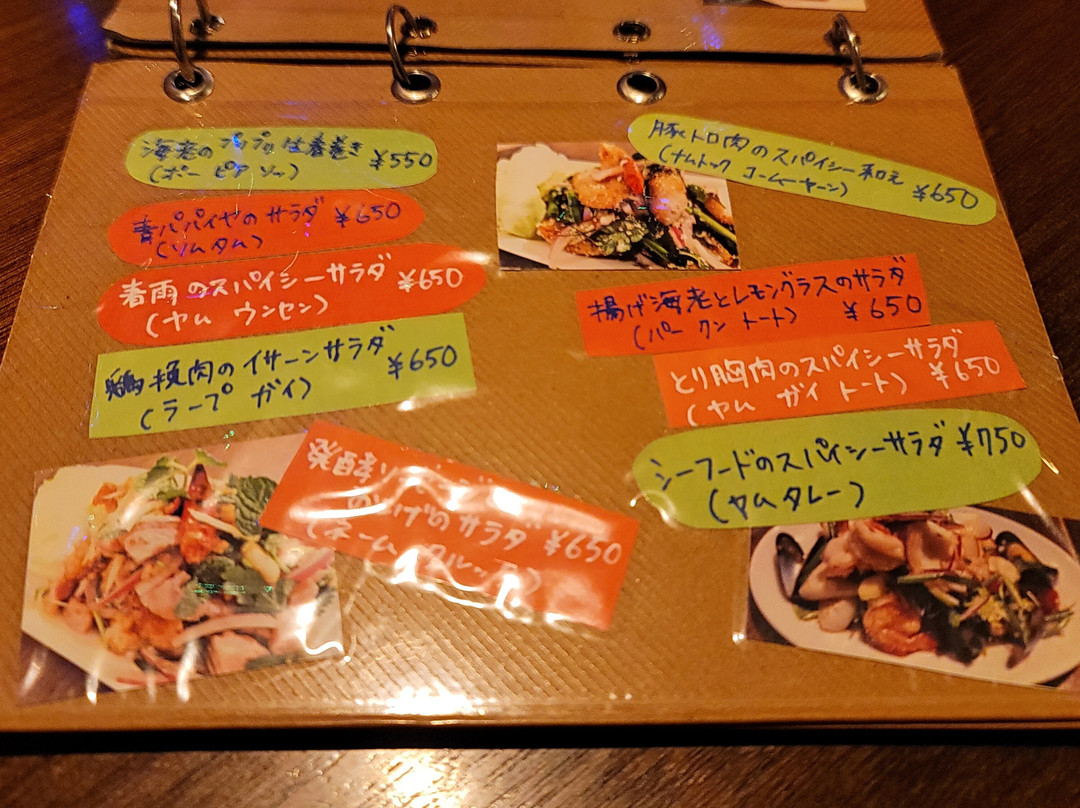 海老のプリプリ生春巻き ¥550
(ポー ピア ソッ)
青パパイヤのサラダ ¥650
(ソムタム)
春雨のスパイシーサラダ ¥650
(ヤム ウンセン)
鶏挽肉のイサーンサラダ ¥650
(ラープ ガイ)
発酵
のサラダ ¥650
(ネーム
豚トロ肉のスパイシー和え ¥650
(ナムトック コームーヤーン)
揚げ海老とレモングラスのサラダ
(パー クン トート) ¥650
とり胸肉のスパイシーサラダ
(ヤム ガイ トート) ¥650
シーフードのスパイシーサラダ ¥750
(ヤムタレー)